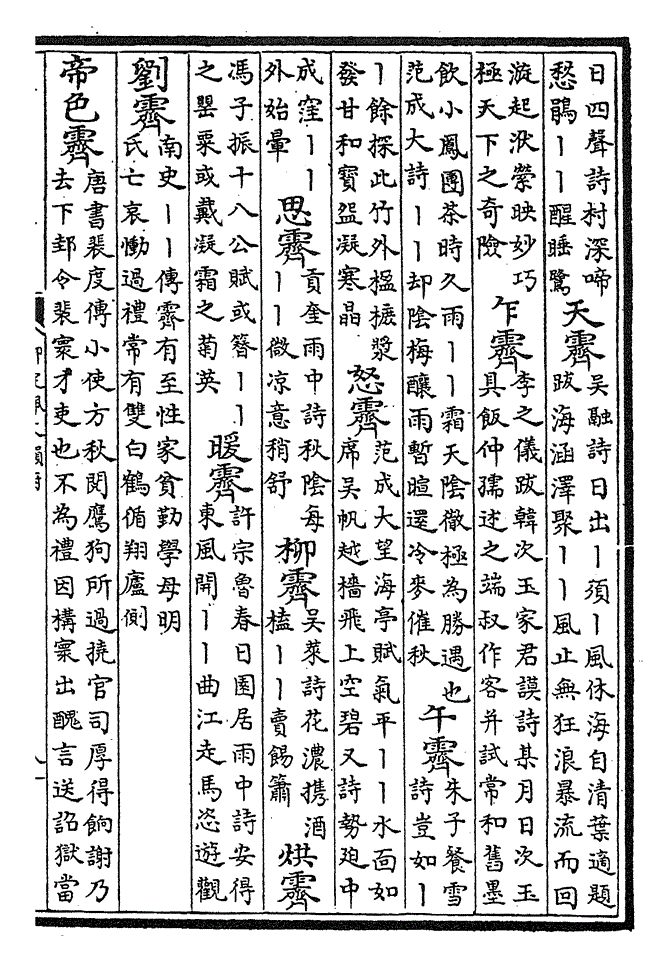 日四聲詩村深啼
愁鵑丨丨醒睡鷺
天霽
吳融詩日出丨須丨風休海自清葉適題
跋海涵澤聚丨丨風止無狂浪暴流而回
漩起洑縈映妙巧
極天下之奇險
乍霽
李之儀跋韓次玉家君謨詩某月日次玉
具飯仲孺述之端叔作客并試常和舊墨
飲小鳳團茶時久雨丨丨霜天陰徵極為勝遇也
范成大詩丨丨却陰梅釀雨暫暄還冷麥催秋
午霽
朱子餐雪
詩豈如丨
丨餘探此竹外榲樝漿
發甘和寶盌凝寒晶
怒霽
范成大望海亭賦氣平丨丨水面如
席吳帆越檣飛上空碧又詩勢廹中
成窪丨丨
外始暈
思霽
貢奎雨中詩秋陰每
丨丨微凉意稍舒
柳霽
吳萊詩花濃携酒
榼丨丨賣餳簫
烘霽
馮子振十八公賦或簪丨丨
之罌粟或戴凝霜之菊英
暖霽
許宗魯春日園居雨中詩安得
東風開丨丨曲江走馬恣遊觀
劉霽
南史丨丨傳霽有至性家貧勤學母明
氏亡哀慟過禮常有雙白鶴循翔廬側
帝色霽
唐書裴度傳小使方秋閱鷹狗所過撓官司厚得餉謝乃
去下邽令裴寰才吏也不為禮因構寰出醜言送詔獄當